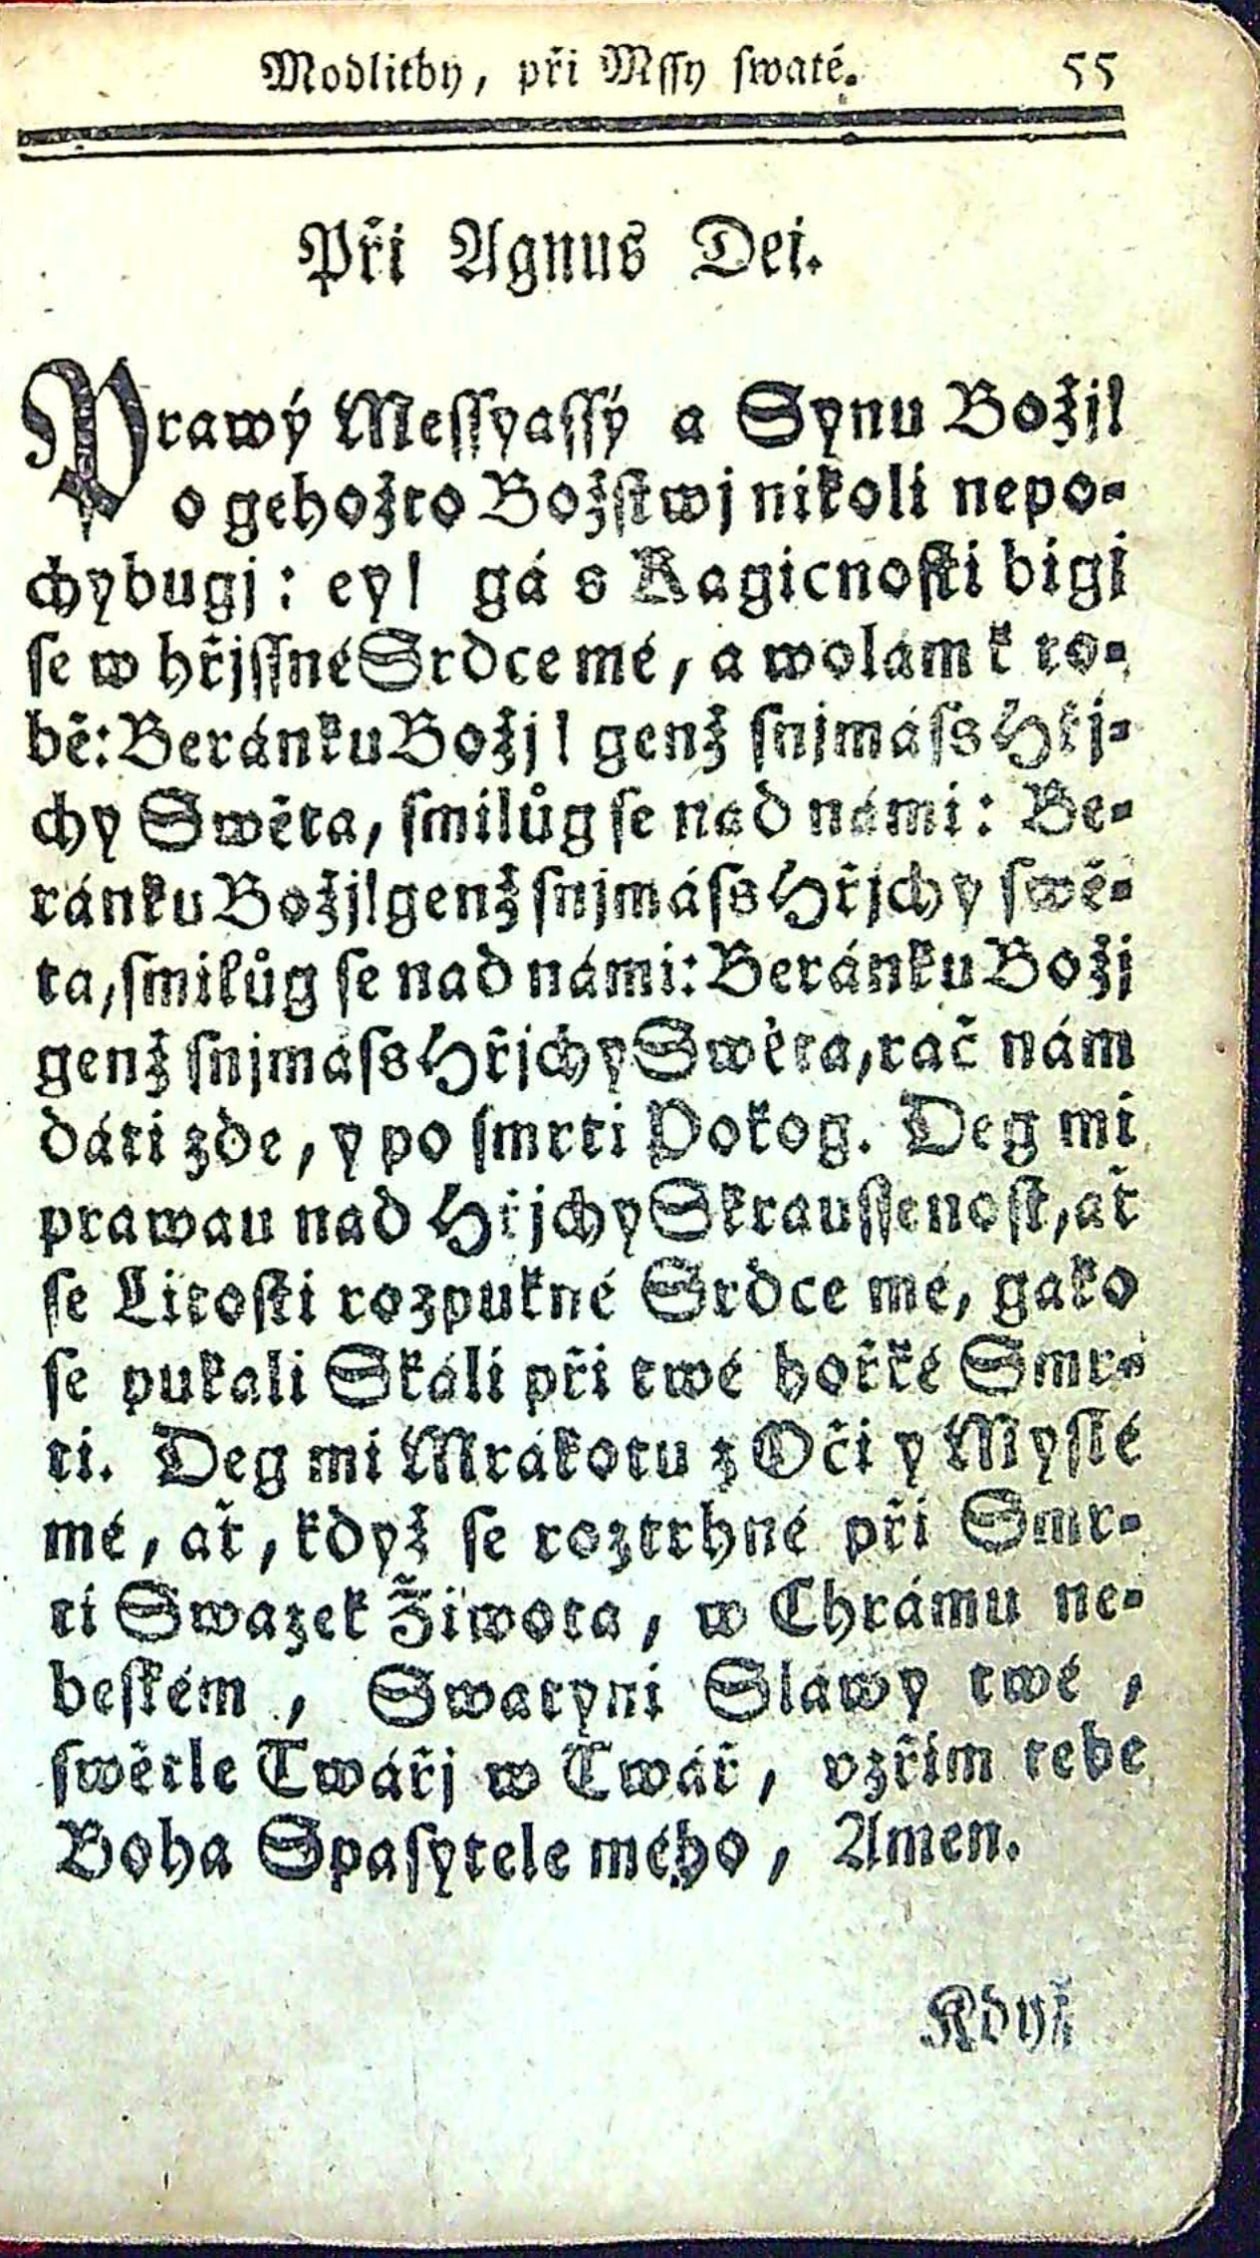 Modlitby, při Mſſy ſwaté. 55
Při Agnus Dei.
Prawý Meſſyaſſý a Synu Božj!
o gehožto Božſtwj nikoli nepo-
chybugj: ey! gá s Kagicnoſti bigi
ſe w hřjſſné Srdce mé, a wolám k to-
bě: Beránku Božj! genž ſnjmáſs Hřj-
chy Swěta, ſmilůg ſe nad námi: Be-
ránku Božj! genž ſnjmáſs Hřjchy ſwě-
ta, ſmilůg ſe nad námi: Beránku Božj
genž ſnjmáſs Hřjchy Swěta, rač nám
dáti zde, y po ſmrti Pokog. Deg mi
prawau nad Hřjchy Skrauſſenoſt, ať
ſe Litoſti rozpukné Srdce mé, gako
ſe pukali Skáli při twé hořké Smr-
ti. Deg mi Mrákotu z Oči y Myſlé
mé, ať, když ſe roztrhné při Smr-
ti Swazek Žiwota, w Chrámu ne-
beſkém, Swatyni Sláwy twé,
ſwětle Twářj w Twář, vzřim tebe
Boha Spaſytele mého, Amen.
Když